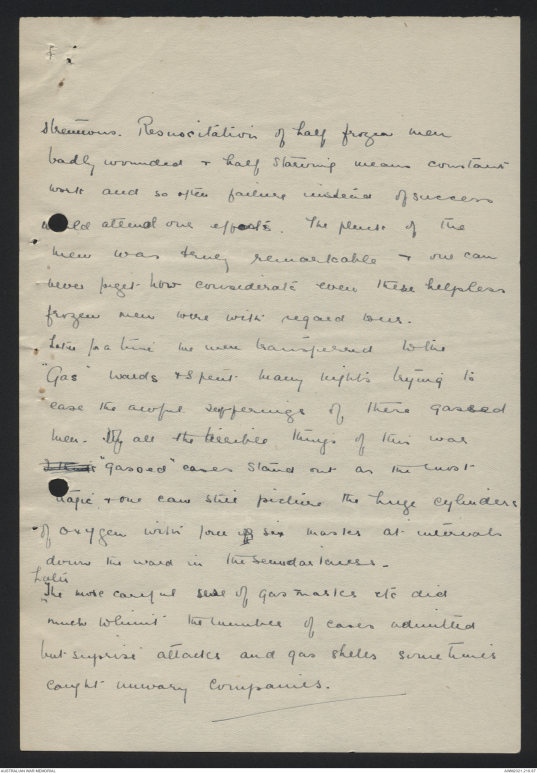 strenuous. Resuscitation of half frozen men
badly wounded + half starving means constant
work and so often failure instead of success
would attend one efforts. The pluck of the
men was truly remarkable + one can
never forget how considerate even these helpless
frozen men were with regard to us.
Later for a time we were transferred to the
"Gas" wards + spent many nights trying to
ease the awful sufferings of these gassed
men. Of all the terrible things of this war
"gassed" cases stand out as the most
tragic + one can still picture the huge cylinders
of oxygen with four or six masks at intervals
down the ward in the semi darkness.
Later
The more careful use of gas masks etc did
much to limit the number of cases admitted
but surprise attacks and gas shells sometimes
caught unwary companies.
AUSTRALIAN WAR MEMORIAL